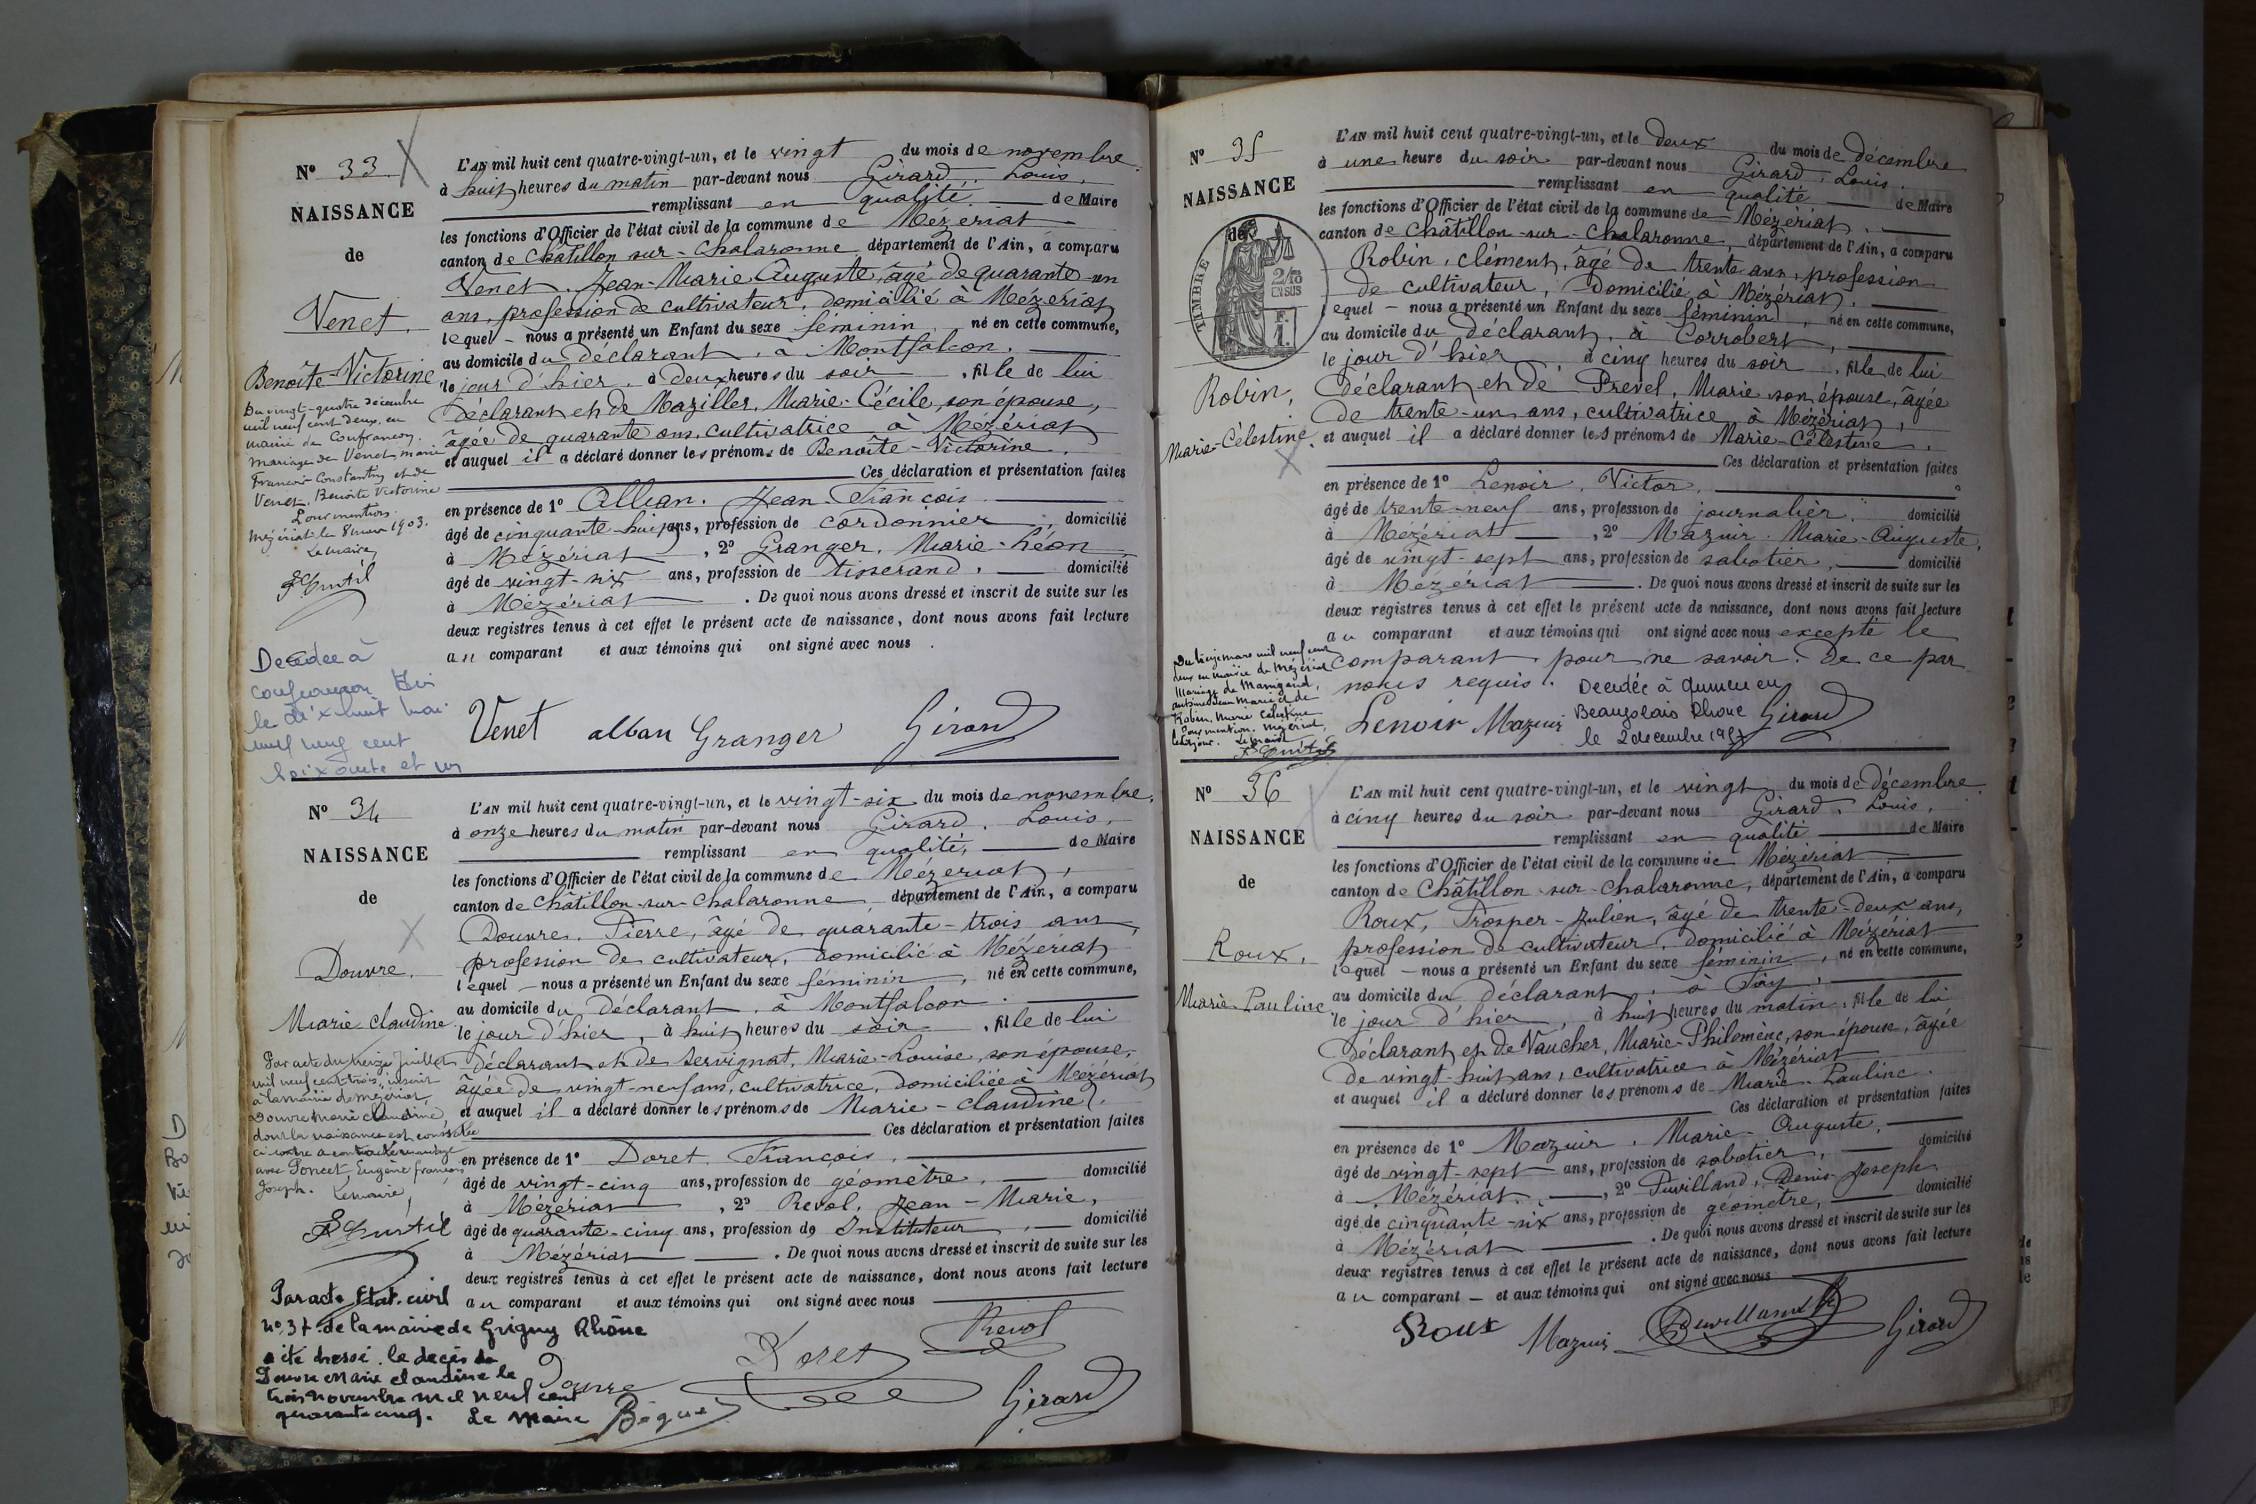 N° 33
NAISSANCE
de
Venet.
Benoîte-Victorine
Du vingt-quatre décembre
mil neuf cent deux, en
mairie de Confrançon.
Mariage de Venet, Marie
François Constantin et de
Venet, Benoîte Victorine
Pour mention.
Mézériat le 8 mars 1903.
Le Maire,
Décédée à
Confrançon
le dix huit mai
mil neuf cent
soixante et un
L'AN mil huit cent quatre-vingt-un, et le vingt du mois de novembre
à huit heures du matin par-devant nous Girard, Louis,
remplissant en qualité de Maire
les fonctions d'Officier de l'état civil de la commune de Mézériat
canton de Châtillon-sur-Chalaronne département de l'Ain, a comparu
Venet, Jean-Marie Auguste, âgé de quarante-un
ans, profession de cultivateur, domicilié à Mézériat
lequel nous a présenté un Enfant du sexe féminin, né en cette commune,
au domicile du déclarant, à Montfalcon.
le jour d'hier, à deux heures du soir, fille de lui
déclarant et de Maziller, Marie-Cécile, son épouse,
âgée de quarante ans, cultivatrice à Mézériat
et auquel il a déclaré donner les prénoms de Benoîte-Victorine.
Ces déclaration et présentation faites
en présence de 1° Alban, Jean-François
âgé de cinquante-huit ans, profession de cordonnier, domicilié
à Mézériat, 2° Granger, Marie-Léon
âgé de vingt-six ans, profession de tisserand, domicilié
à Mézériat. De quoi nous avons dressé et inscrit de suite sur les
deux registres tenus à cet effet le présent acte de naissance, dont nous avons fait lecture
au comparant et aux témoins qui ont signé avec nous.
Venet alban Granger Girard
N° 34
NAISSANCE
de
Douvre.
Marie Claudine
Par acte du treize Juillet
mil neuf cent trois, inscrit
à la mairie de Mézériat
Douvre Marie Claudine,
dont la naissance est constatée
ci-contre a contracté mariage
avec Poncet, Eugène François
Joseph. Le Maire,
Par acte Etat-civil
n° 37 de la mairie de Grigny Rhône
a été dressé le décès de
Douvre Marie Claudine le
trois novembre mil neuf cent
quarante cinq. Le Maire
L'AN mil huit cent quatre-vingt-un, et le vingt-six du mois de novembre,
à onze heures du matin par-devant nous Girard, Louis,
remplissant en qualité, de Maire
les fonctions d'Officier de l'état civil de la commune de Mézériat,
canton de Châtillon-sur-Chalaronne, département de l'Ain, a comparu
Douvre, Pierre, âgé de quarante-trois ans,
profession de cultivateur, domicilié à Mézériat
lequel nous a présenté un Enfant du sexe féminin, né en cette commune,
au domicile du déclarant, à Montfalcon.
le jour d'hier, à huit heures du soir, fille de lui
déclarant et de Servignat, Marie-Louise, son épouse,
âgée de vingt-neuf ans, cultivatrice, domiciliée à Mézériat
et auquel il a déclaré donner les prénoms de Marie-Claudine.
Ces déclaration et présentation faites
en présence de 1° Doret, François,
âgé de vingt-cinq ans, profession de géomètre, domicilié
à Mézériat, 2° Revol, Jean-Marie,
âgé de quarante-cinq ans, profession de Instituteur, domicilié
à Mézériat. De quoi nous avons dressé et inscrit de suite sur les
deux registres tenus à cet effet le présent acte de naissance, dont nous avons fait lecture
au comparant et aux témoins qui ont signé avec nous
Douvre Doret Revol Girard
N° 35
NAISSANCE
de
TIMBRE
2/10
EN SUS
Robin,
Marie-Célestine.
mil neuf cent
deux en mairie de Mézériat
Mariage de Manigand,
Robin, Marie Célestine
Pour mention. Mézériat,
L'AN mil huit cent quatre-vingt-un, et le deux du mois de décembre
à une heure du soir par-devant nous Girard, Louis.
remplissant en qualité de Maire
les fonctions d'Officier de l'état civil de la commune de Mézériat.
canton de Châtillon-sur-Chalaronne, département de l'Ain, a comparu
Robin, Clément, âgé de trente ans, profession
de cultivateur, domicilié à Mézériat.
lequel nous a présenté un Enfant du sexe féminin, né en cette commune,
au domicile du déclarant, à Corrobert,
le jour d'hier à cinq heures du soir, fille de lui
déclarant et de Prevel, Marie son épouse, âgée
de trente-un ans, cultivatrice, à Mézériat,
et auquel il a déclaré donner les prénoms de Marie-Célestine.
Ces déclaration et présentation faites
en présence de 1° Lenoir, Victor,
âgé de trente-neuf ans, profession de journalier, domicilié
à Mézériat, 2° Mazuir, Marie-Auguste,
âgé de vingt-sept ans, profession de sabotier, domicilié
à Mézériat. De quoi nous avons dressé et inscrit de suite sur les
deux registres tenus à cet effet le présent acte de naissance, dont nous avons fait lecture
au comparant et aux témoins qui ont signé avec nous excepté le
comparant pour ne savoir. De ce par
nous requis.
Décédée à Quincié en
Beaujolais Rhône
le 2 décembre 1957
Lenoir Mazuir Girard
N° 36
NAISSANCE
de
Roux,
Marie-Pauline
L'AN mil huit cent quatre-vingt-un, et le vingt du mois de décembre
à cinq heures du soir par-devant nous Girard, Louis,
remplissant en qualité de Maire
les fonctions d'Officier de l'état civil de la commune de Mézériat
canton de Châtillon-sur-Chalaronne, département de l'Ain, a comparu
Roux, Prosper-Julien, âgé de trente-deux ans,
profession de cultivateur, domicilié à Mézériat
lequel nous a présenté un Enfant du sexe féminin, né en cette commune,
au domicile du déclarant, à
le jour d'hier, à huit heures du matin, fille de lui
déclarant et de Vaucher, Marie-Philomène, son épouse, âgée
de vingt-huit ans, cultivatrice à Mézériat
et auquel il a déclaré donner les prénoms de Marie-Pauline.
Ces déclaration et présentation faites
en présence de 1° Mazuir, Marie-Auguste,
âgé de vingt-sept ans, profession de sabotier, domicilié
à Mézériat, 2° Puvilland, Denis-Joseph
âgé de cinquante-six ans, profession de géomètre, domicilié
à Mézériat. De quoi nous avons dressé et inscrit de suite sur les
deux registres tenus à cet effet le présent acte de naissance, dont nous avons fait lecture
au comparant et aux témoins qui ont signé avec nous
Roux Mazuir Puvilland Girard